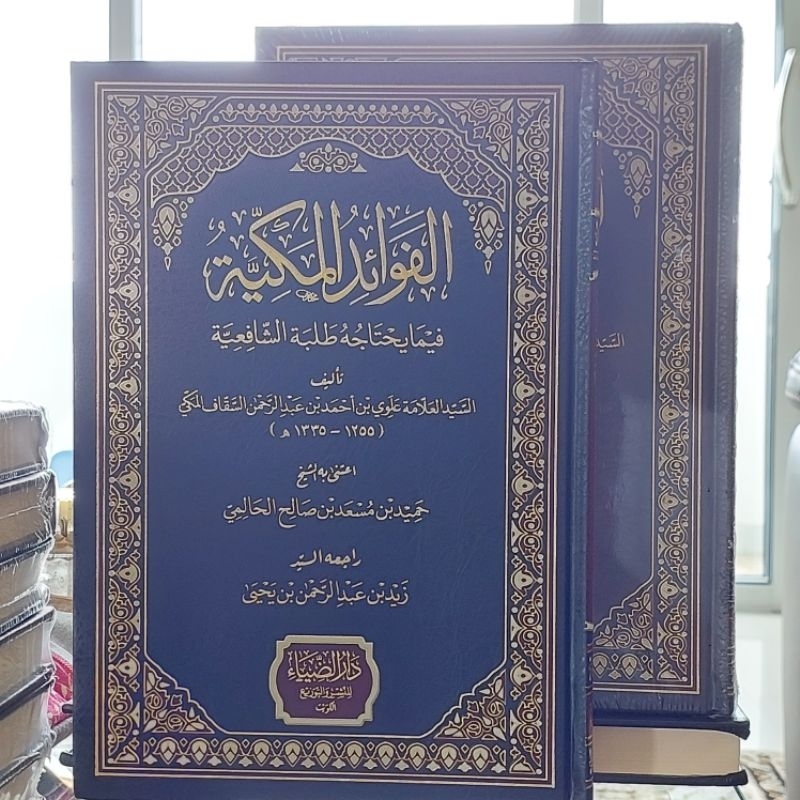 الفَوَائِدُ المَكِّيَّةُ
فِيمَا يَحْتَاجُهُ طَلَبَة الشَّافِعِيَّة
تأليف
السَّيِّد العَلَّامَة عَلَوِي بْن أَحْمَد بْن عَبْد الرَّحْمٰن السَّقَّاف المَكِّيّ
( ١٢٥٥ - ١٣٣٥ هـ )
اعتنى به الشيخ
حَمِيْد بْن مُسْعَد بْن صَالِح الحَالِمِيّ
راجعه السيّد
زَيْد بْن عَبْد الرَّحْمٰن بْن يَحْيَى
دَارُ الضِّيَاء
للنشر والتوزيع
الكويت
السَّيِّد